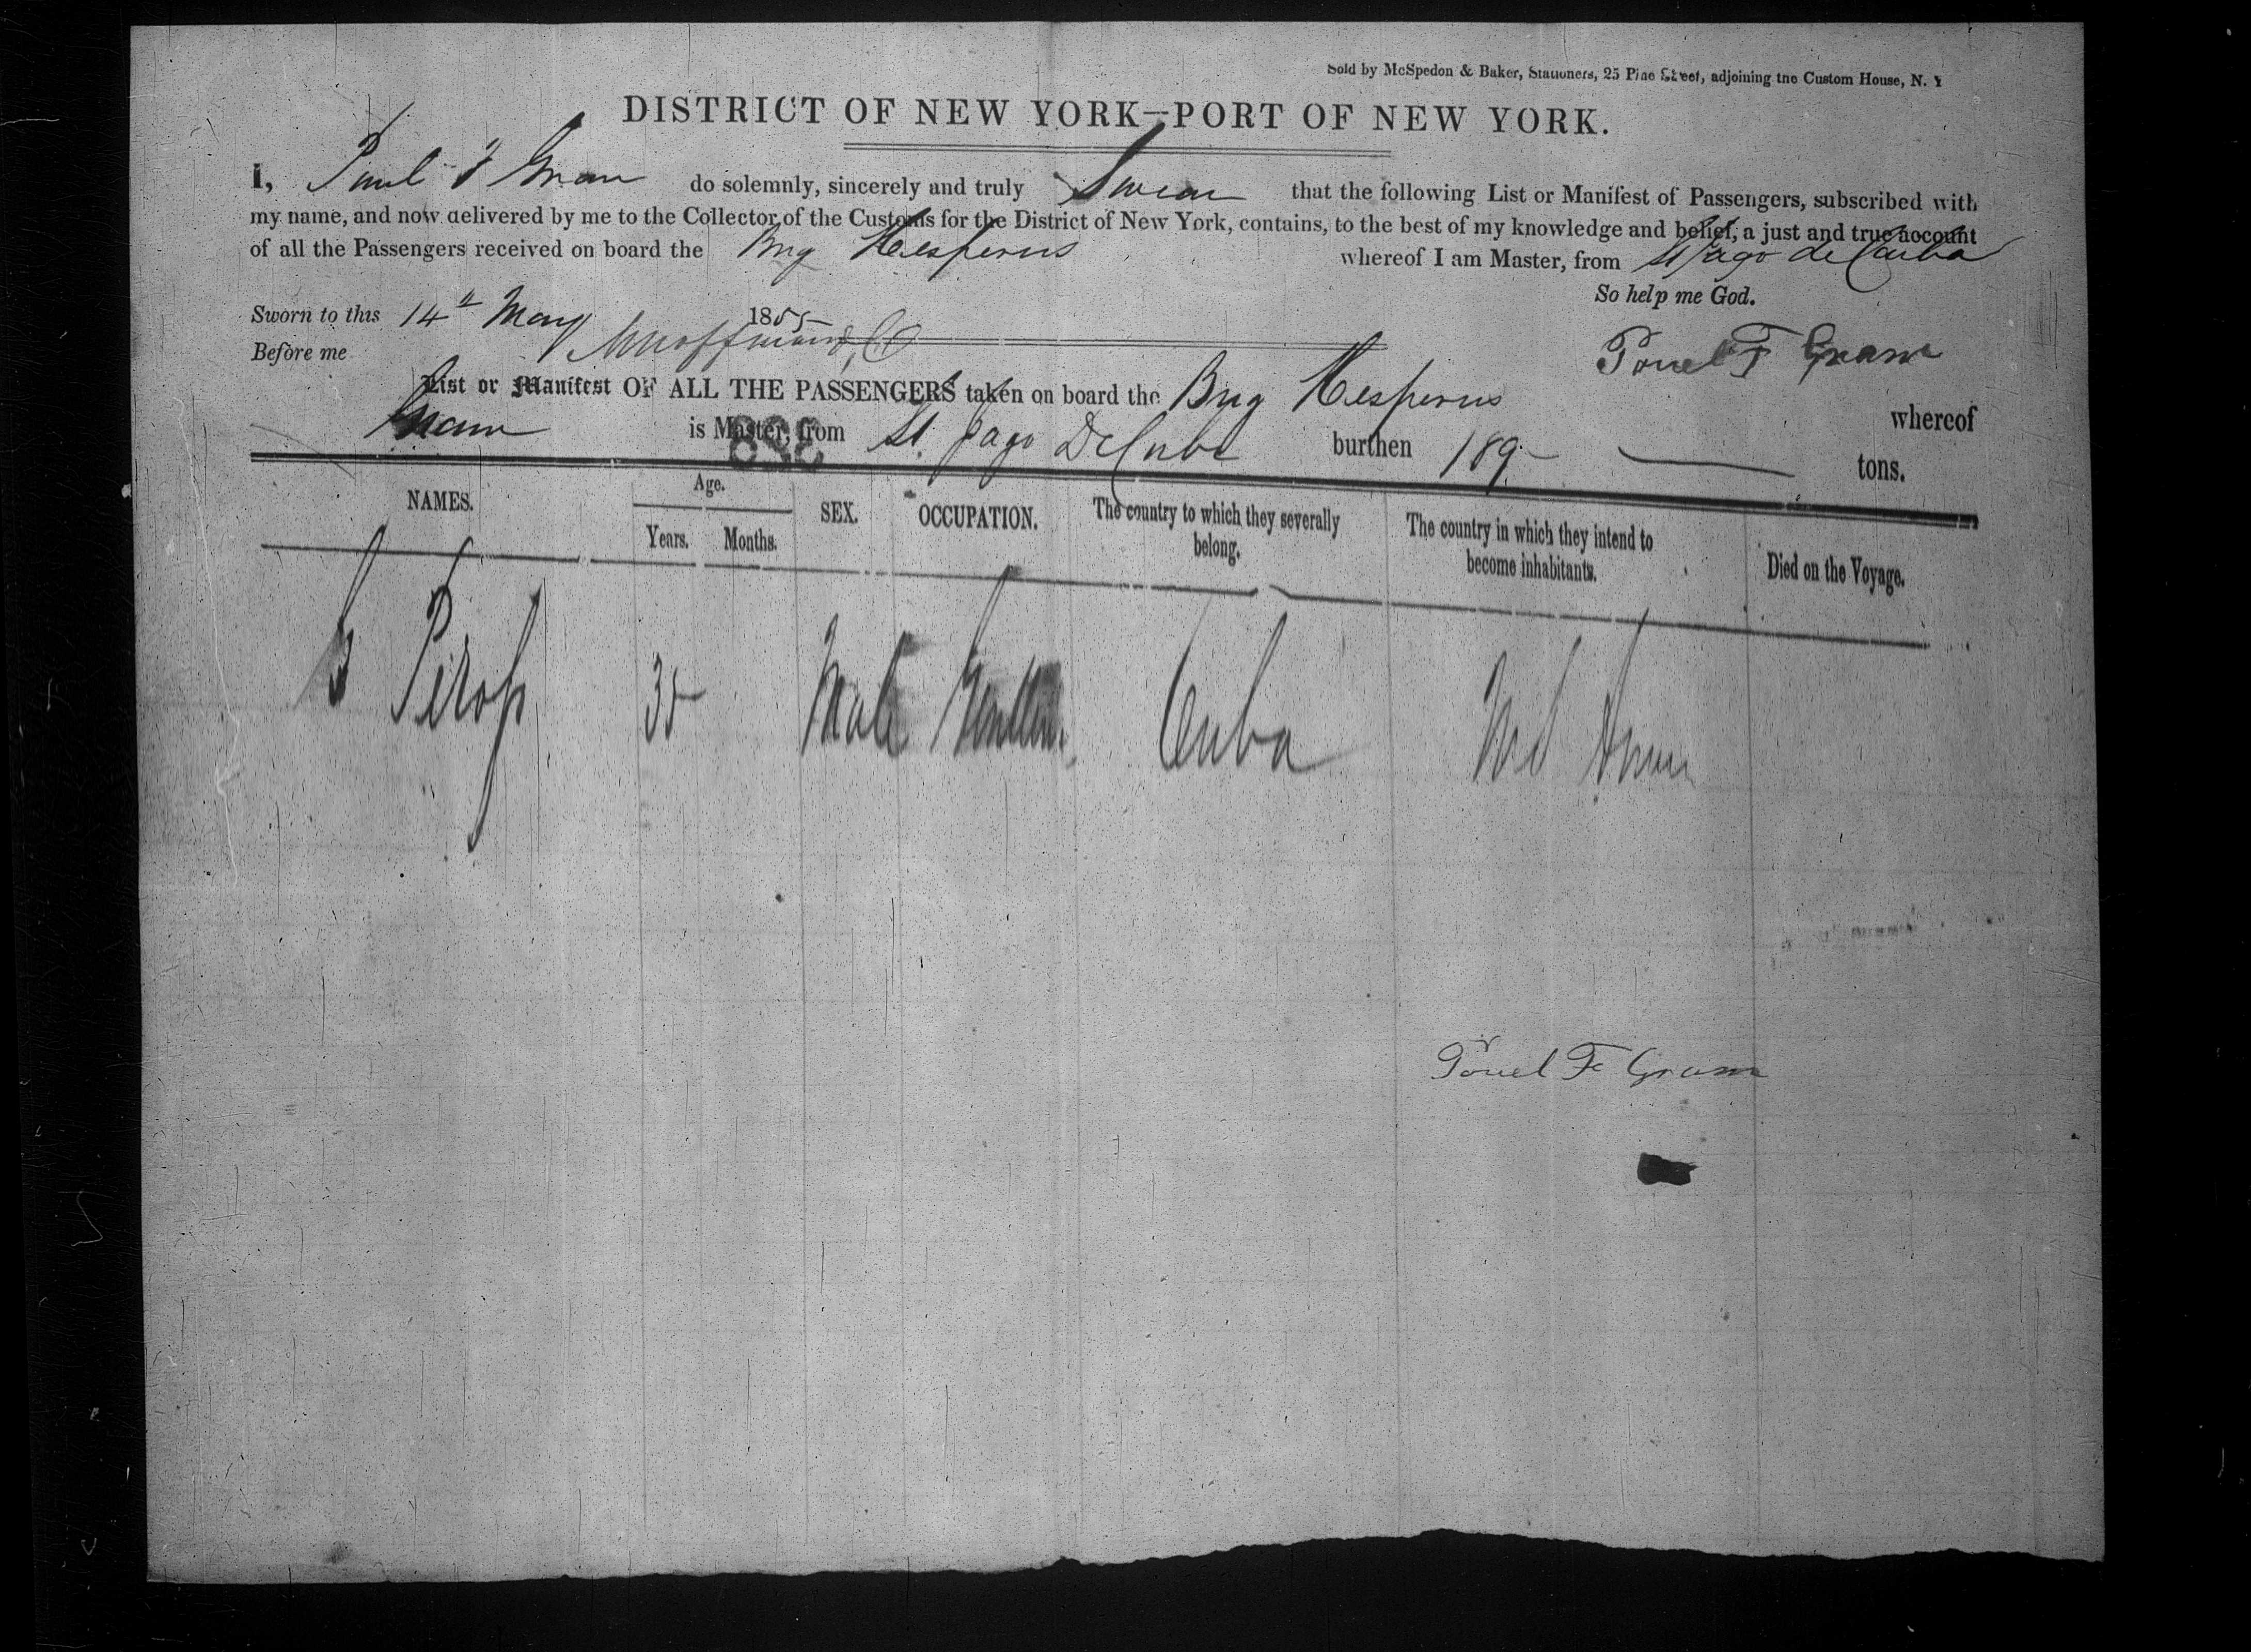 Sold by McSpedon & Baker, Stationers, 25 Pine Street, adjoining the Custom House, N. Y
DISTRICT OF NEW YORK—PORT OF NEW YORK.
I, Paul F Gram do solemnly, sincerely and truly Swear that the following List or Manifest of Passengers, subscribed with
my name, and now delivered by me to the Collector of the Customs for the District of New York, contains, to the best of my knowledge and belief, a just and true account
of all the Passengers received on board the Brig Hesperus whereof I am Master, from St Jago de Cuba
So help me God.
Sworn to this 14th May 1855
Before me
Pouel F Gram
List or Manifest OF ALL THE PASSENGERS taken on board the Brig Hesperus whereof
Gram is Master, from St. Jago De Cuba burthen 189 tons.
NAMES. Age. Years. Months. SEX. OCCUPATION. The country to which they severally belong. The country in which they intend to become inhabitants. Died on the Voyage.
35 Male Cuba
Pouel F Gram